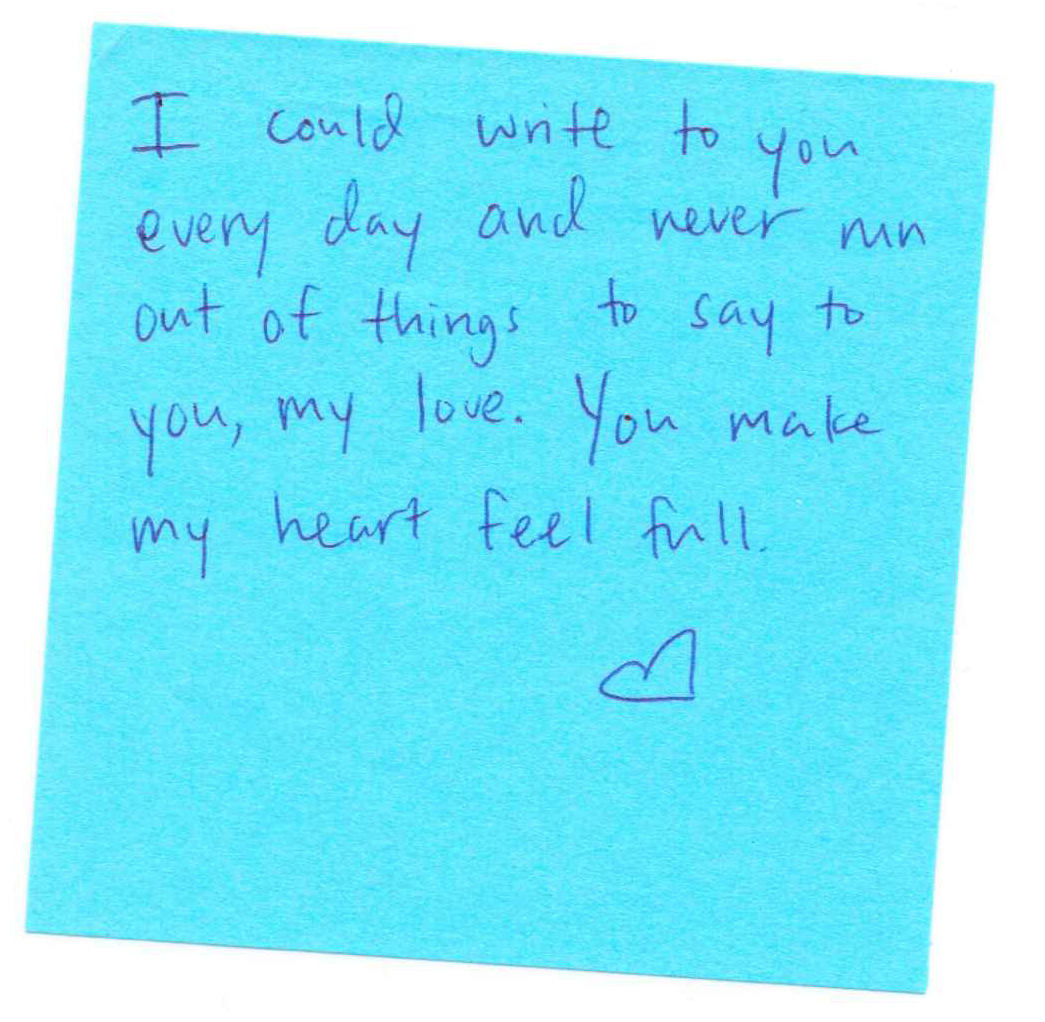 I could write to you
every day and never run
out of things to say to
you, my love. You make
my heart feel full.